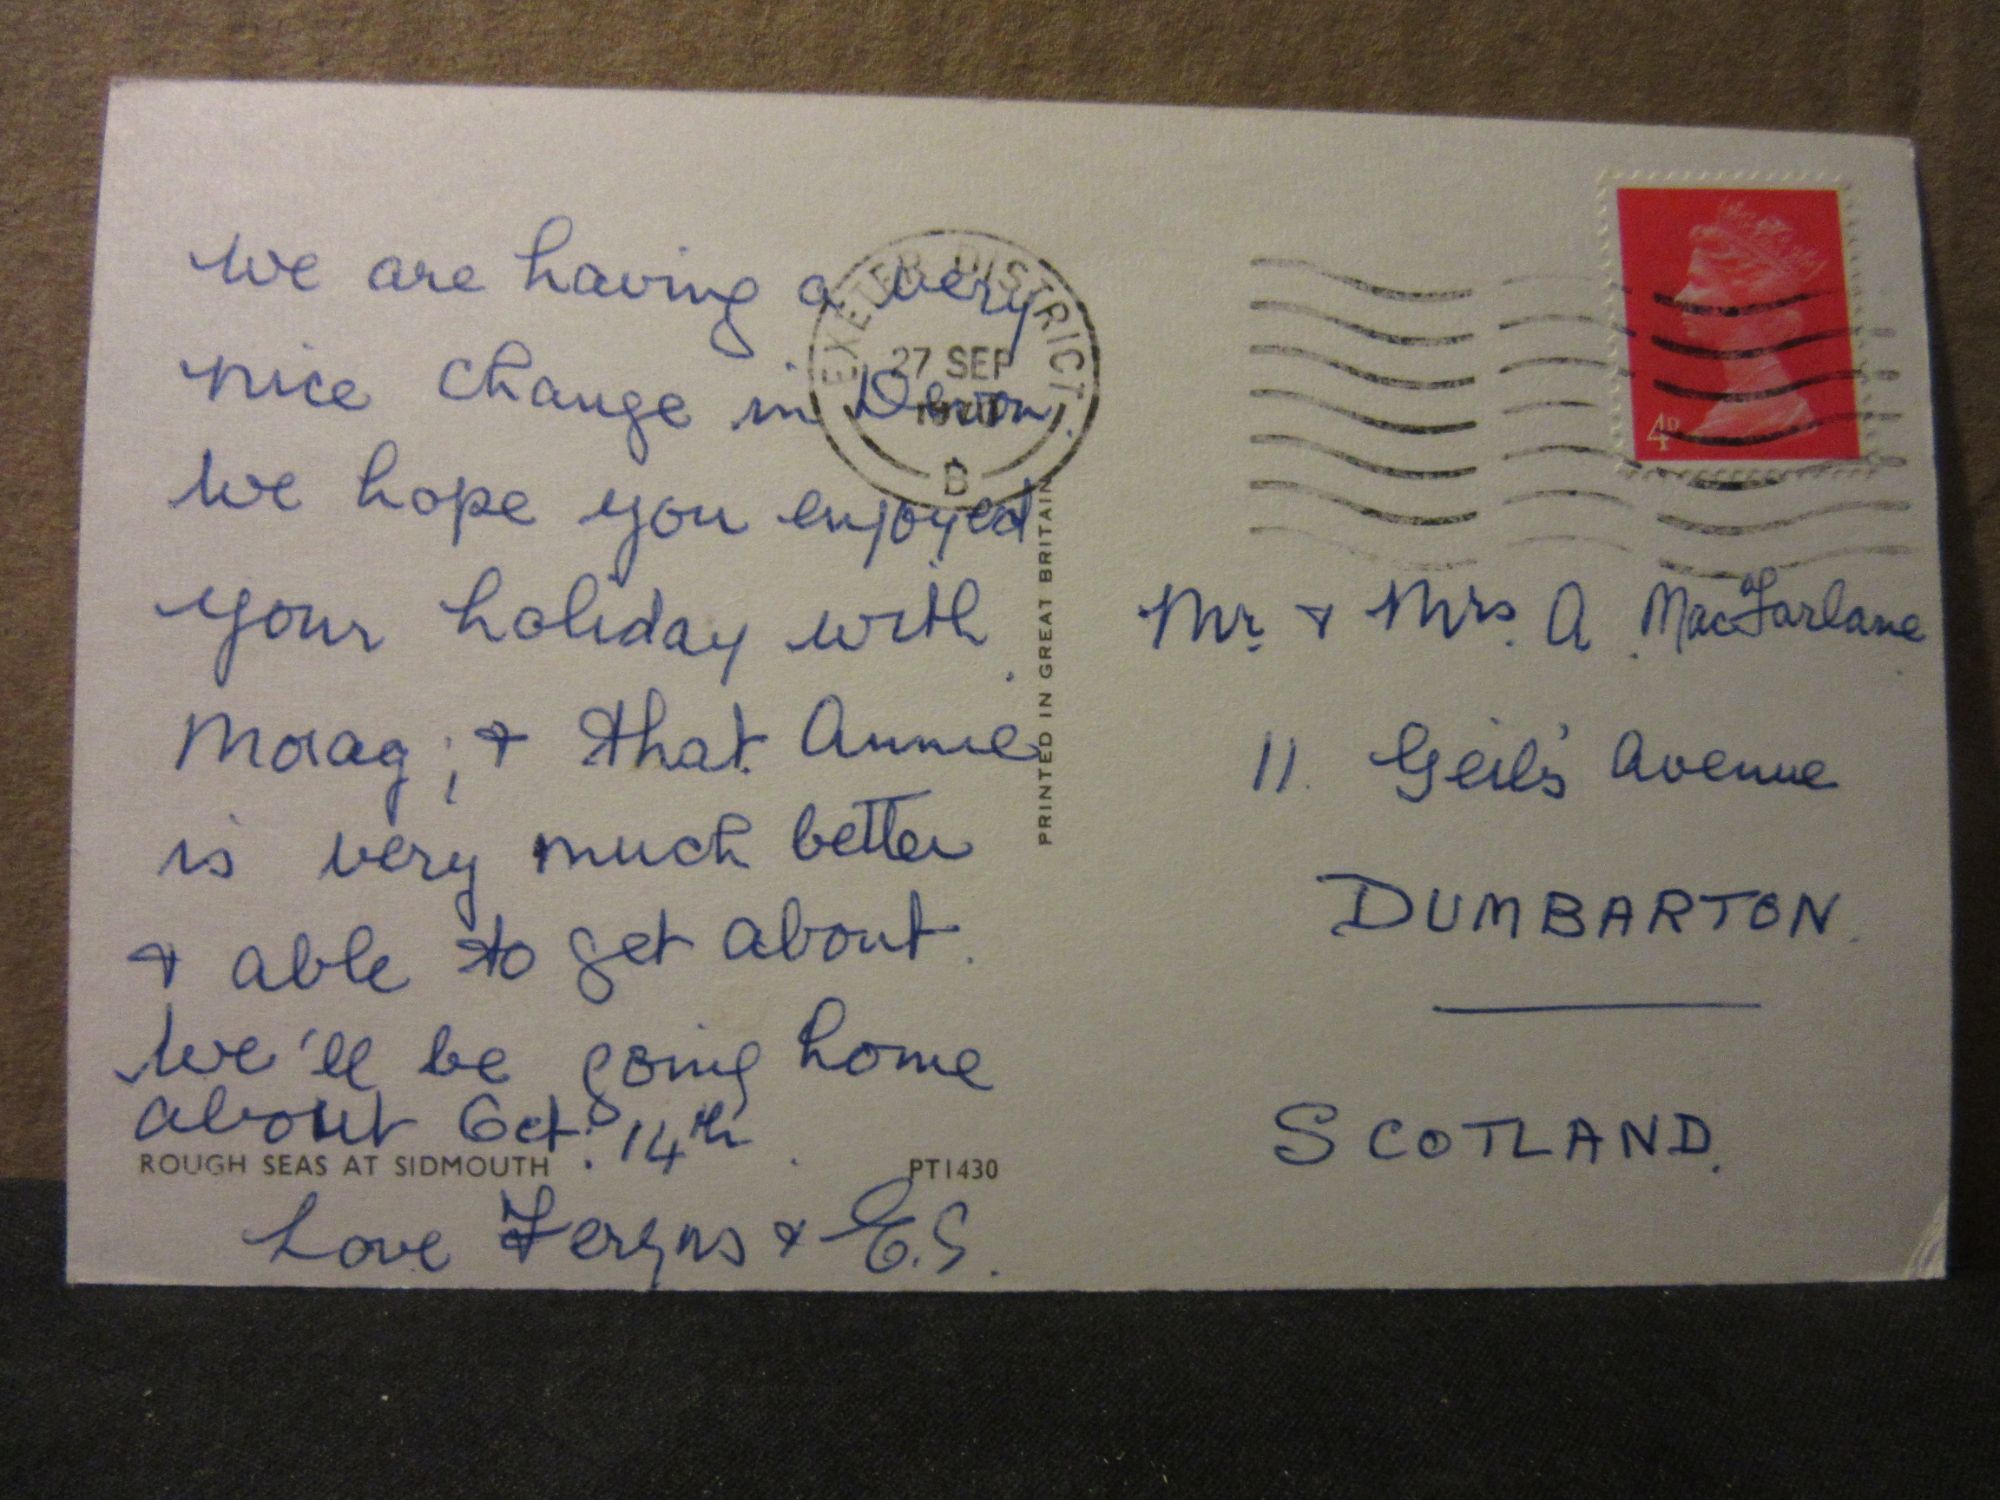 We are having a very
nice change in Devon.
We hope you enjoyed
your holiday with
Morag; & that Annie
is very much better
& able to get about.
We'll be going home
about Oct. 14th.
ROUGH SEAS AT SIDMOUTH
PT1430
Love Fergus & E.S.
EXETER DISTRICT
27 SEP
B
PRINTED IN GREAT BRITAIN
4D
Mr. & Mrs. A. MacFarlane
11. Geils' Avenue
DUMBARTON.
SCOTLAND.